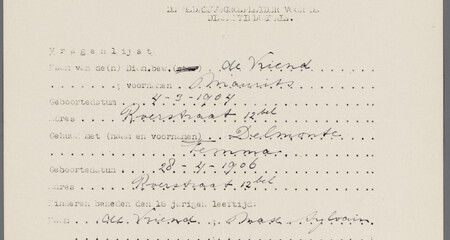 Vragenlijst
Naam van de(n) Dien.bew. de Vriend
; voornamen Maurits
Geboortedatum 4-3-1904
Adres Roerstraat 12 bel
Gehuwd met (naam en voornamen) Delmonte
Femma
Geboortedatum 28-4-1906
Adres Roerstraat 12 bel
Kinderen beneden den 16 jarigen leeftijd:
Naam de Vriend, Max Sylvain